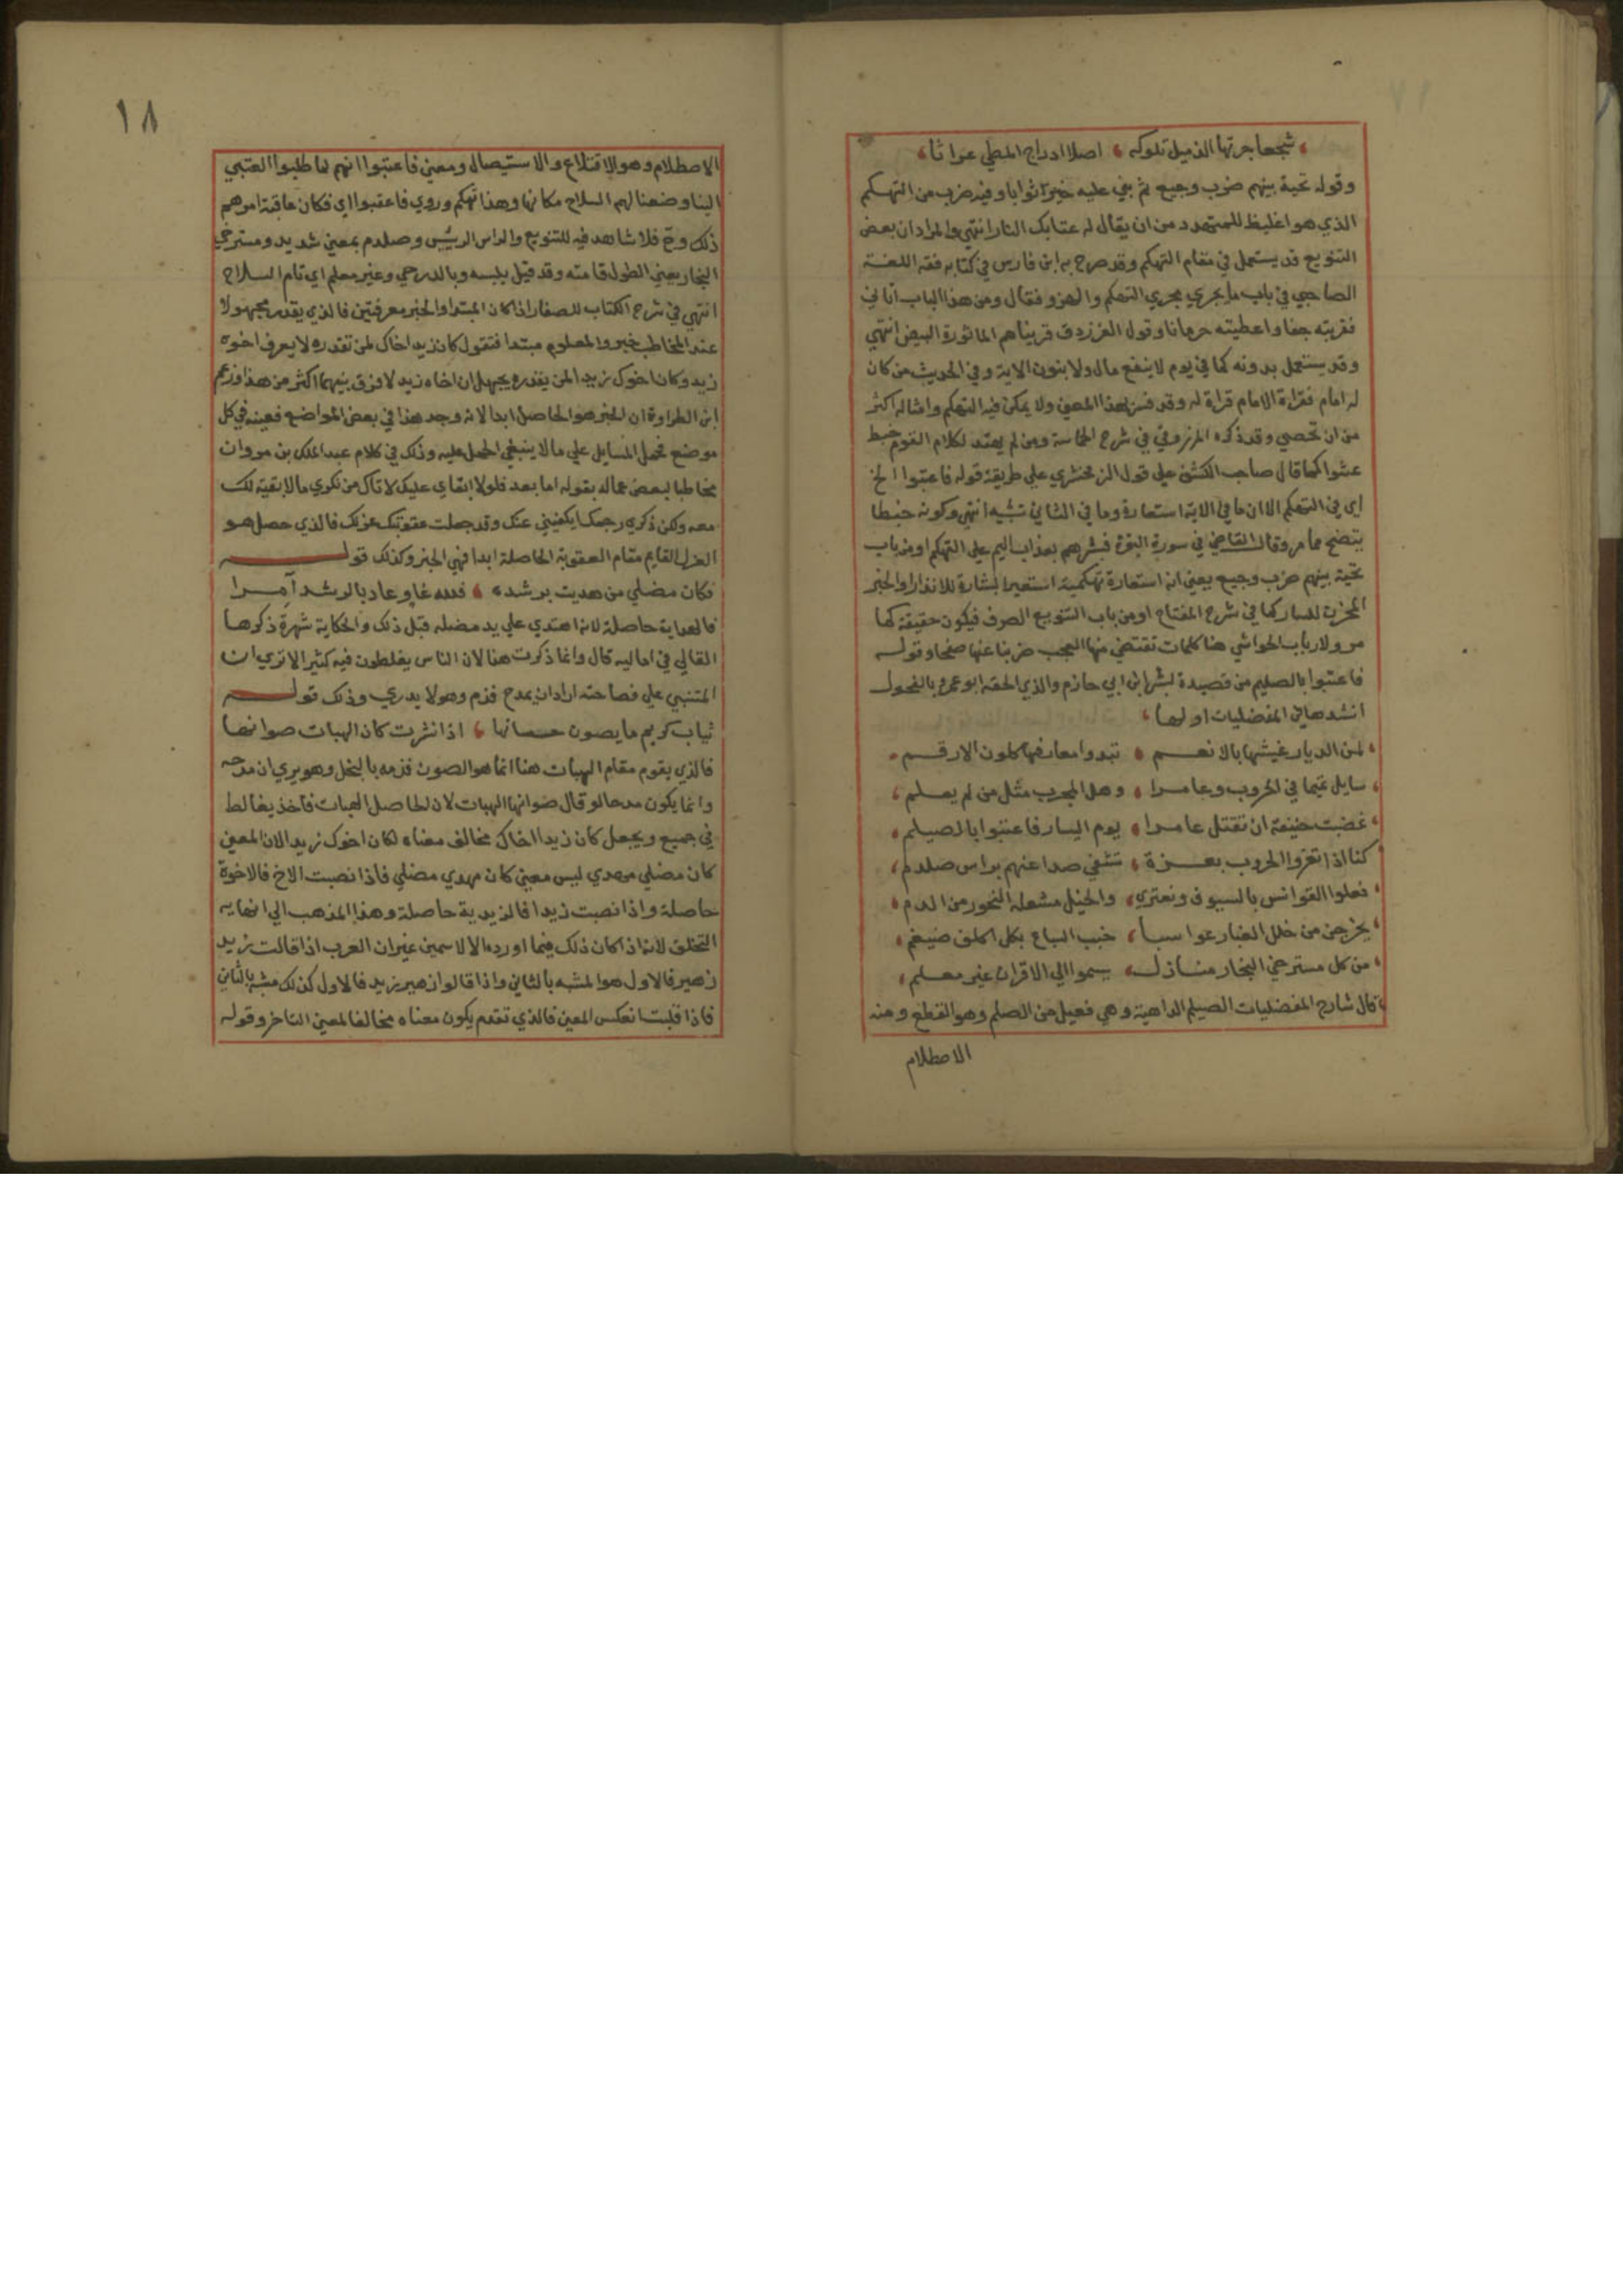 شجعا جرتها الذميل تلوكه اصلا اذراح المطي غراثا
وقوله تحية بينهم ضرب وجيع ثم بني عليه خير ثوابا وفيه ضرب من التهكم
الذي هو اغليظ للمتهدد من ان يقال له عتابك النار انتهي والمراد ان بعض
التنويع قد يستعمل في مقام التهكم وقد صرح به ابن فارس في كتابه فقه اللغة
الصاحبي في باب ما يجري مجري التهكم والهزو فقال ومن هذا الباب اتاني
فقريته جفا واعطيته حرمانا وقول الفرزدق قريناهم الماثورة البيض انتهي
وقد يستعمل بدونه كما في يوم لا ينفع مال ولا بنون الاية وفي الحديث من كان
له امام فقراءة الامام قراءة له وقد فسر بهذا المعني ولا يمكن فيه التهكم وامثاله اكثر
من ان تحصي وقد ذكره المرزوقي في شرح الحماسة ومن لم يهتد لكلام القوم خبط
عشوا كما قال صاحب الكشف علي قول الزمخشري علي طريقة قوله فاعتبوا الخ
اي في التهكم الا ان ما في الاية استعارة وما في الثاني تشبيه انتهي وكونه خبطا
يتضح مما مر وقال القاضي في سورة البقرة فبشرهم بعذاب اليم علي التهكم او من باب
تحية بينهم ضرب وجيع يعني انه استعارة تهكمية استعير البشارة للانذار والخبر
المحزن للسار كما في شرح المفتاح او من باب التنويع الصرف فيكون حقيقة كما
مر ولارباب الحواشي هنا كلمات تقتضي منها العجب ضربنا عنها صفحا وقوله
فاعتبوا بالصيلم من قصيدة لبشر ابن ابي حازم والذي الحقه ابو عمرو بالفحول
انشدها في المفضليات اولها
لمن الديار غشيتها بالانعم تبدوا معارفها كلون الارقم
سايل تميما في الحروب وعامرا وهل المجرب مثل من لم يعلم
غضبت حنيفة ان تقتل عامرا يوم اليسار فاعتبوا بالصيلم
كنا اذا تغزوا لحروب بعزة تشفي صداعهم براس صلدم
نعلوا القوانس بالسيوف ونعتري والخيل مشعلة النحور من الدم
يخرجن من خلل الغبار عوابسا خبب السباع بكل اكلف ضيغم
من كل مسترخي النجاد منازل يسموا الي الاقران غير معلم
قال شارح المفضليات الصيلم الداهية وهي فعيل من الصلم وهو القطع ومنه
الاصطلام
١٨
الاصطلام وهو الاقتلاع والاستيصال ومعني فاعتبوا انهم لما طلبوا العتبي
الينا وضعنا لهم السلاح مكانها وهذا تهكم وروي فاعقبوا اي فكان عاقبة امرهم
ذلك وح فلا شاهد فيه للتنويع والراس الرئيس وصلدم بمعني شديد ومسترخي
النجاد يعني الطول قامته وقد قيل يلبسه وبالدرحي وغير معلم اي تام السلاح
انتهي في شرح الكتاب للصفار اذا كان المبتدا والخبر معرفتين فالذي يقدر مجهولا
عند المخاطب خبر والمعلوم مبتدا فتقول كان زيد اخاك لمن تقدره لا يعرف اخوة
زيد وكان اخوك زيدا لمن يقدره يجهل ان اخاه زيد لا فرق بينهما اكثر من هذا وزعم
ابن الطراوة ان الخبر هو الحاصل ابدا لانه وجد هذا في بعض المواضع فعينه في كل
موضع فحمل المسايل علي ما لا ينبغي الحمل عليه وذلك في كلام عبد الملك بن مروان
مخاطبا لبعض عماله بقوله اما بعد فلولا ابقاي عليك لاتاك من نكري ما لا بقية لك
معه ولكن ذكري رحمك يكفيني عنك وقد جعلت عقوبتك عزلك فالذي حصل هو
العزل القايم مقام العقوبة الحاصلة ابدا فهي الخبر وكذلك قوله
فكان مضلي من هديت برشده فلله غاو عاد بالرشد آمرا
فالهداية حاصلة لانه اهتدي علي يد مضله قبل ذلك والحكاية شهرة ذكرها
القالي في اماليه قال وانما ذكرت هنا لان الناس يغلطون فيه كثير الا تري ان
المتنبي علي فصاحته اراد ان يمدح فذم وهو لا يدري وذلك قوله
ثياب كريم ما يصون حسانها اذا نشرت كان الهبات صوانها
فالذي يقوم مقام الهبات هنا انما هو الصون فذمه بالبخل وهو يري ان مدحه
وانما يكون مدحا لو قال صوانها الهبات لان الحاصل الهبات فاخذ يغالط
في جميع ويجعل كان زيدا اخاك مخالف معناه لكان اخوك زيدا لان المعني
كان مضلي مهدي ليس معني كان مهدي مضلي فاذا نصبت الاخ فالاخوة
حاصلة واذا نصبت زيدا فالزيدية حاصلة وهذا المذهب الي انهايه
التخلق لانه اذا كان ذلك فيما اورده الا لاسمين غير ان العرب اذا قالت زيد
زهير فالاول هو المشبه بالثاني واذا قالوا زهير زيد فالاول كذلك مشبه بالثاني
فاذا قلبت انعكس المعني فالذي تقدم يكون معناه مخالفا لمعني التاخر وقوله